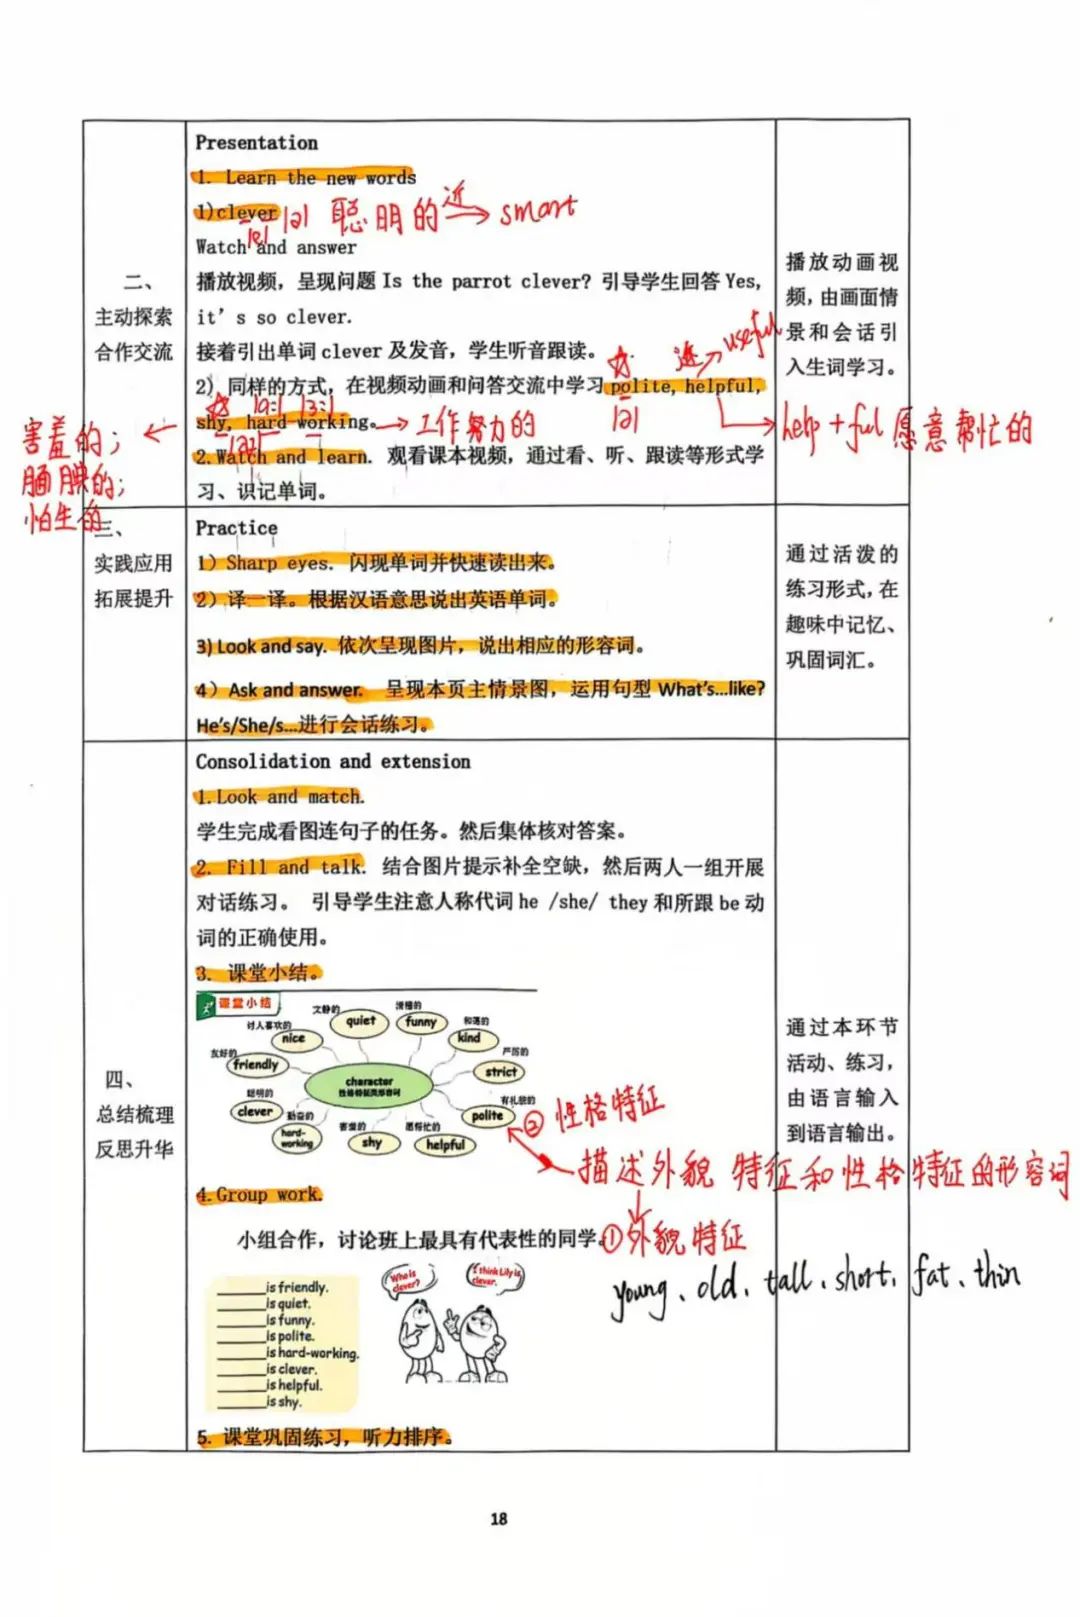 Presentation
1. Learn the new words
1)clever |e| |ə| 聪明的 近 → smart
Watch and answer
二、
主动探索
合作交流
播放视频，呈现问题 Is the parrot clever? 引导学生回答 Yes,
it's so clever.
接着引出单词 clever 及发音，学生听音跟读。
近 → useful
2）同样的方式，在视频动画和问答交流中学习 polite, helpful,
|ə|
help + ful 愿意帮忙的
shy, hard-working。→ 工作努力的
害羞的；
腼腆的；
怕生的
2.Watch and learn. 观看课本视频，通过看、听、跟读等形式学
习、识记单词。
播放动画视
频，由画面情
景和会话引
入生词学习。
三、
实践应用
拓展提升
Practice
1）Sharp eyes. 闪现单词并快速读出来。
2）译一译。根据汉语意思说出英语单词。
3) Look and say. 依次呈现图片，说出相应的形容词。
4）Ask and answer. 呈现本页主情景图，运用句型 What's...like?
He's/She/s...进行会话练习。
通过活泼的
练习形式，在
趣味中记忆、
巩固词汇。
四、
总结梳理
反思升华
Consolidation and extension
1.Look and match.
学生完成看图连句子的任务。然后集体核对答案。
2. Fill and talk. 结合图片提示补全空缺，然后两人一组开展
对话练习。 引导学生注意人称代词 he /she/ they 和所跟 be 动
词的正确使用。
3. 课堂小结。
课堂小结
文静的
quiet
滑稽的
funny
和蔼的
kind
讨人喜欢的
nice
严厉的
strict
友好的
friendly
character
性格特征类形容词
有礼貌的
polite
聪明的
clever
勤奋的
hard-
working
害羞的
shy
愿帮忙的
helpful
② 性格特征
描述外貌 特征和性格特征的形容词
4.Group work.
小组合作，讨论班上最具有代表性的同学。
①外貌特征
young、old、tall、short、fat、thin
______is friendly.
______is quiet.
______is funny.
______is polite.
______is hard-working.
______is clever.
______is helpful.
______is shy.
Who is
clever?
I think Lily is
clever.
5. 课堂巩固练习，听力排序。
通过本环节
活动、练习，
由语言输入
到语言输出。
18